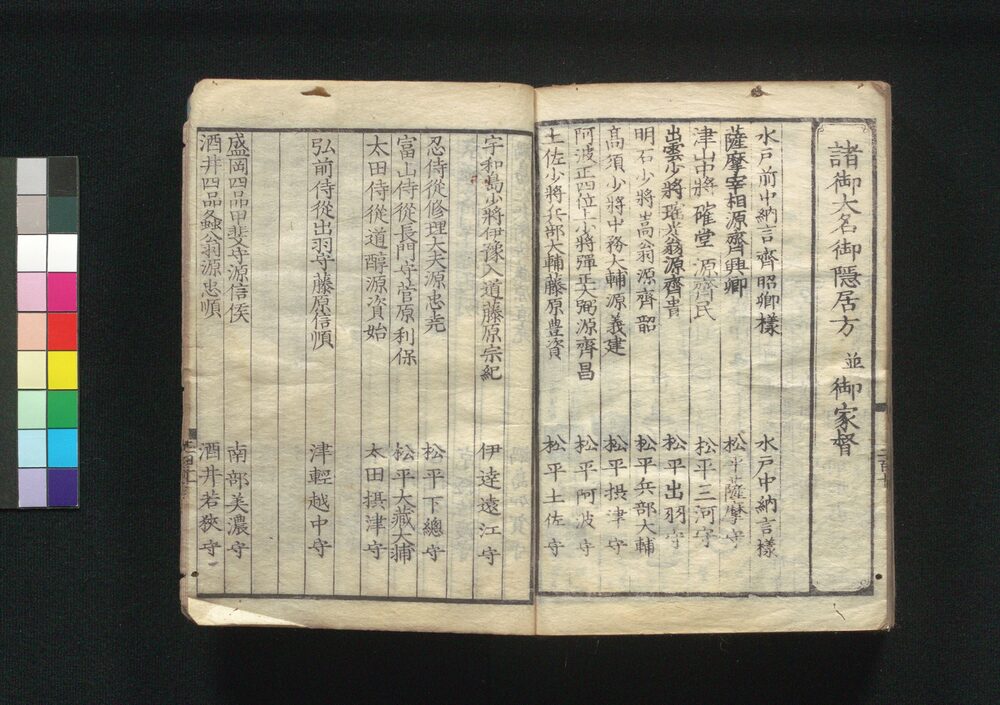 諸御大名御隠居方 並 御家督
水戸前中納言齊昭卿様 水戸中納言様
薩摩宰相源齊興卿 松平薩摩守
津山中将確堂源齊民 松平三河守
出雲少将瑶光翁源齊貴 松平出羽守
明石少将嵩翁源齊韶 松平兵部大輔
高須少将中務大輔源義建 松平摂津守
阿波正四位上少将弾正大弼源齊昌 松平阿波守
土佐少将兵部大輔藤原豊資 松平土佐守
宇和島少将伊豫入道藤原宗紀 伊達遠江守
忍侍従修理大夫源忠尭 松平下總守
富山侍従長門守菅原利保 松平大蔵大輔
太田侍従道醇源資始 太田摂津守
弘前侍従出羽守藤原信順 津輕越中守
盛岡四品甲斐守源信侯 南部美濃守
酒井四品 公翁源忠順 酒井若狭守